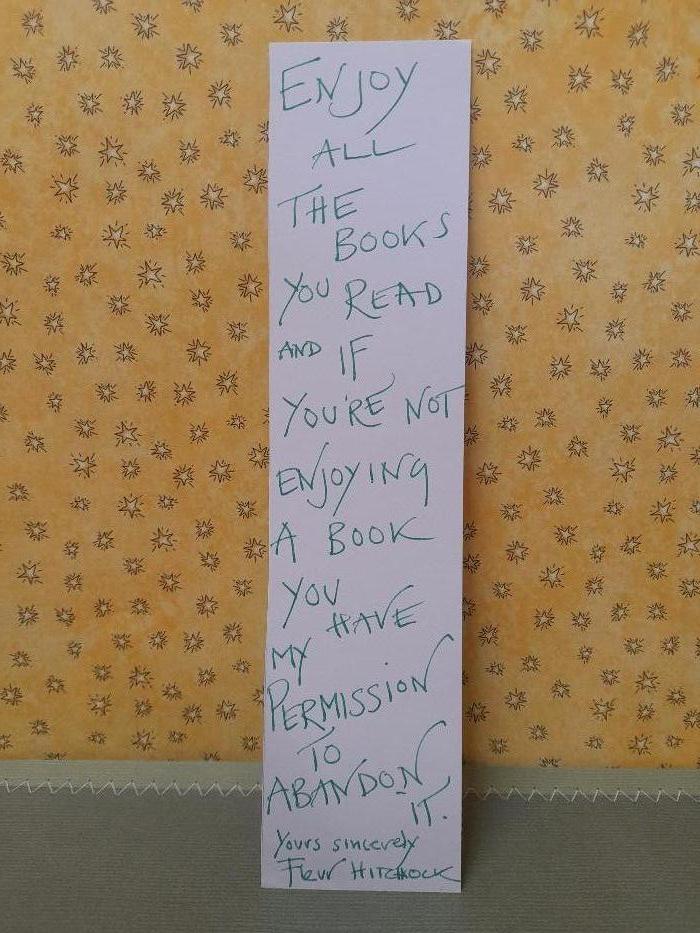 ENJOY
ALL
THE
BOOKS
YOU READ
AND IF
YOU'RE NOT
ENJOYING
A BOOK
YOU
HAVE
MY
PERMISSION
TO
ABANDON
IT.
Yours sincerely
Fleur HITCHCOCK